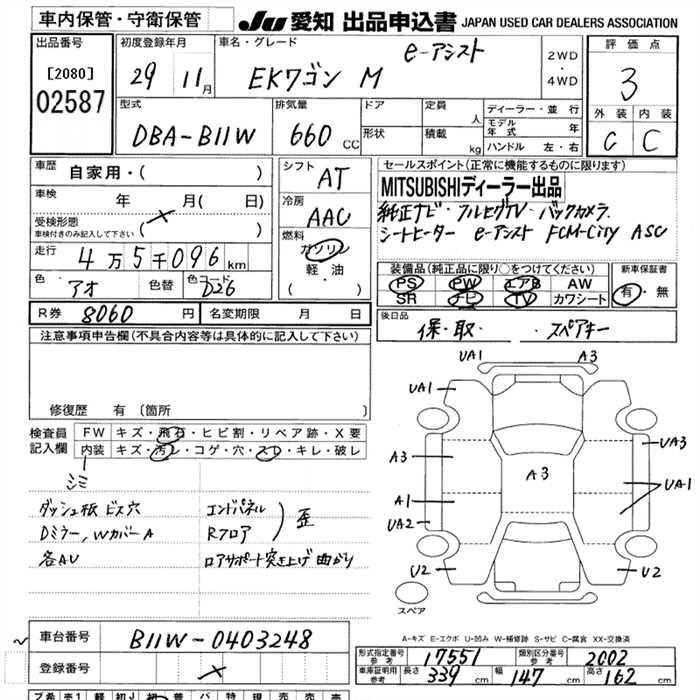 車内保管・守衛保管
JU 愛知 出品申込書 JAPAN USED CAR DEALERS ASSOCIATION
出品番号
[2080]
02587
初度登録年月
29 11月
車名・グレード
e-アシスト
EKワゴン M
2WD
・
4WD
評価点
3
外装 内装
C C
型式
DBA-B11W
排気量
660 CC
ドア
形状
定員 人
積載 kg
ディーラー・並行
モデル年式 年
ハンドル 左・右
車歴 自家用・( )
車検 年 月( 日)
受検形態
車検付きのみ記入して下さい ( )
走行 4万5千096km
色 アオ 色替 色コード D26
シフト AT
冷房 AAC
燃料
ガソリン
軽・油
( ・ )
セールスポイント(正常に機能するものに限ります)
MITSUBISHIディーラー出品
純正ナビ・フルセグTV・バックカメラ
シートヒーター e-アシスト FCM-City ASC
装備品(純正品に限り○をつけてください)
PS PW エアB AW
SR ナビ TV カワシート
新車保証書
有・無
R券 8060 円 名変期限 月 日
後日品
保・取・ スペアキー
注意事項申告欄(不具合内容等は具体的に記入して下さい)
修復歴 有 (箇所 )
検査員記入欄
FW キズ・飛石・ヒビ割・リペア跡・X要
内装 キズ・汚レ・コゲ・穴・スレ・キレ・破レ
シミ
ダッシュ板 ビス穴
Dミラー,WカバーA
各AU
エンドパネル
Rフロア
歪
ロアサポート突き上げ 曲がり
UA1 A3
UA1
A3 UA3
A3
A1 UA1
UA2
U2 U2
スペア
A-キズ E-エクボ U-凹み W-補修跡 S-サビ C-腐食 XX-交換済
車台番号 B11W-0403248
登録番号
形式指定番号 参考 17551 類別区分番号 参考 2002
車庫証明用 参考 長さ 339 cm 幅 147 cm 高さ 162 cm